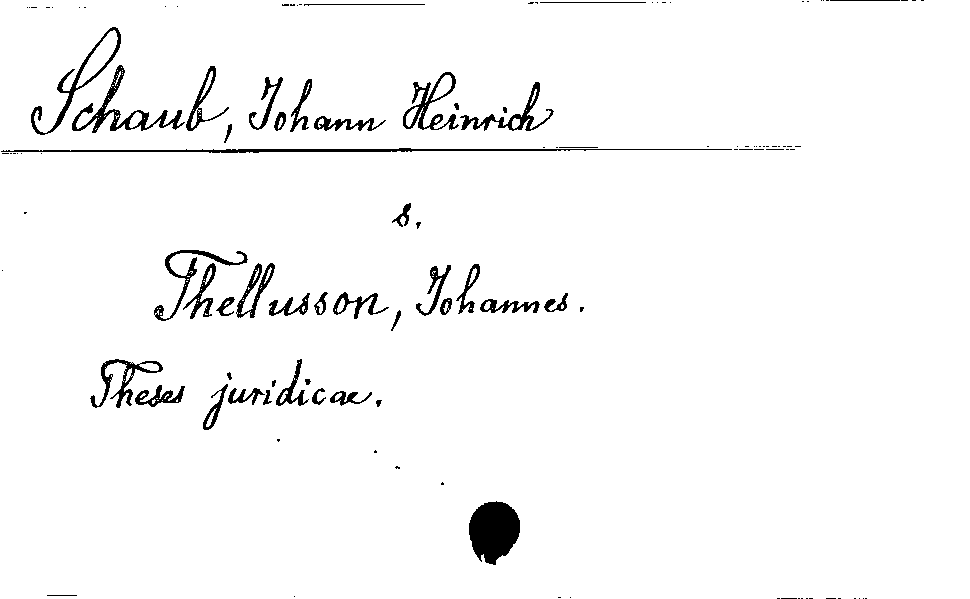 Schaub, Johann Heinrich
s.
Thellusson, Johannes.
Theses juridicae.